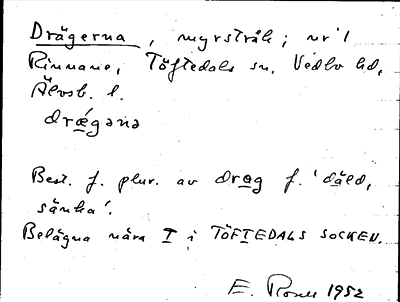 Drägerna, myrstråk; nr 1
Rinnane, Töftedals sn, Vedbo hd,
Älvsb. l.
drǽgəna
Best. f. plur. av drag f. 'däld,
sänka'.
Belägna nära I i TÖFTEDALS SOCKEN.
E. 1952